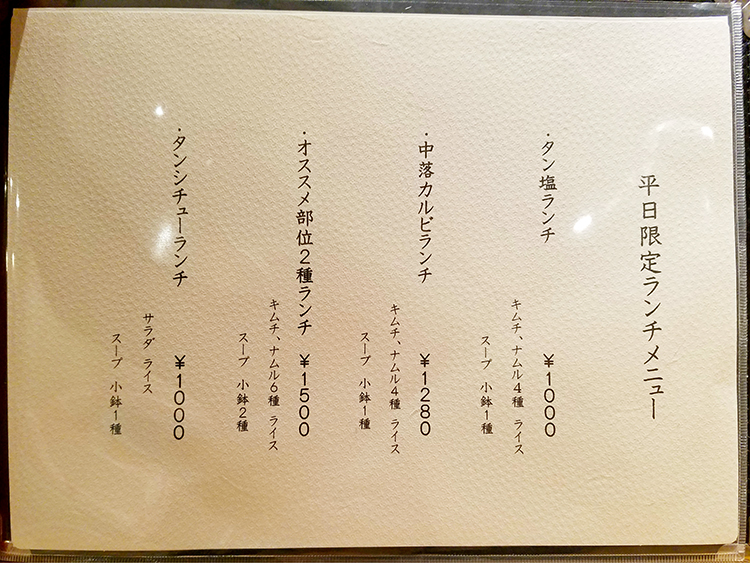 平日限定ランチメニュー
・タン塩ランチ ¥1000
キムチ、ナムル4種 ライス
スープ 小鉢1種
・中落カルビランチ ¥1280
キムチ、ナムル4種 ライス
スープ 小鉢1種
・オススメ部位2種ランチ ¥1500
キムチ、ナムル6種 ライス
スープ 小鉢2種
・タンシチューランチ ¥1000
サラダ ライス
スープ 小鉢1種